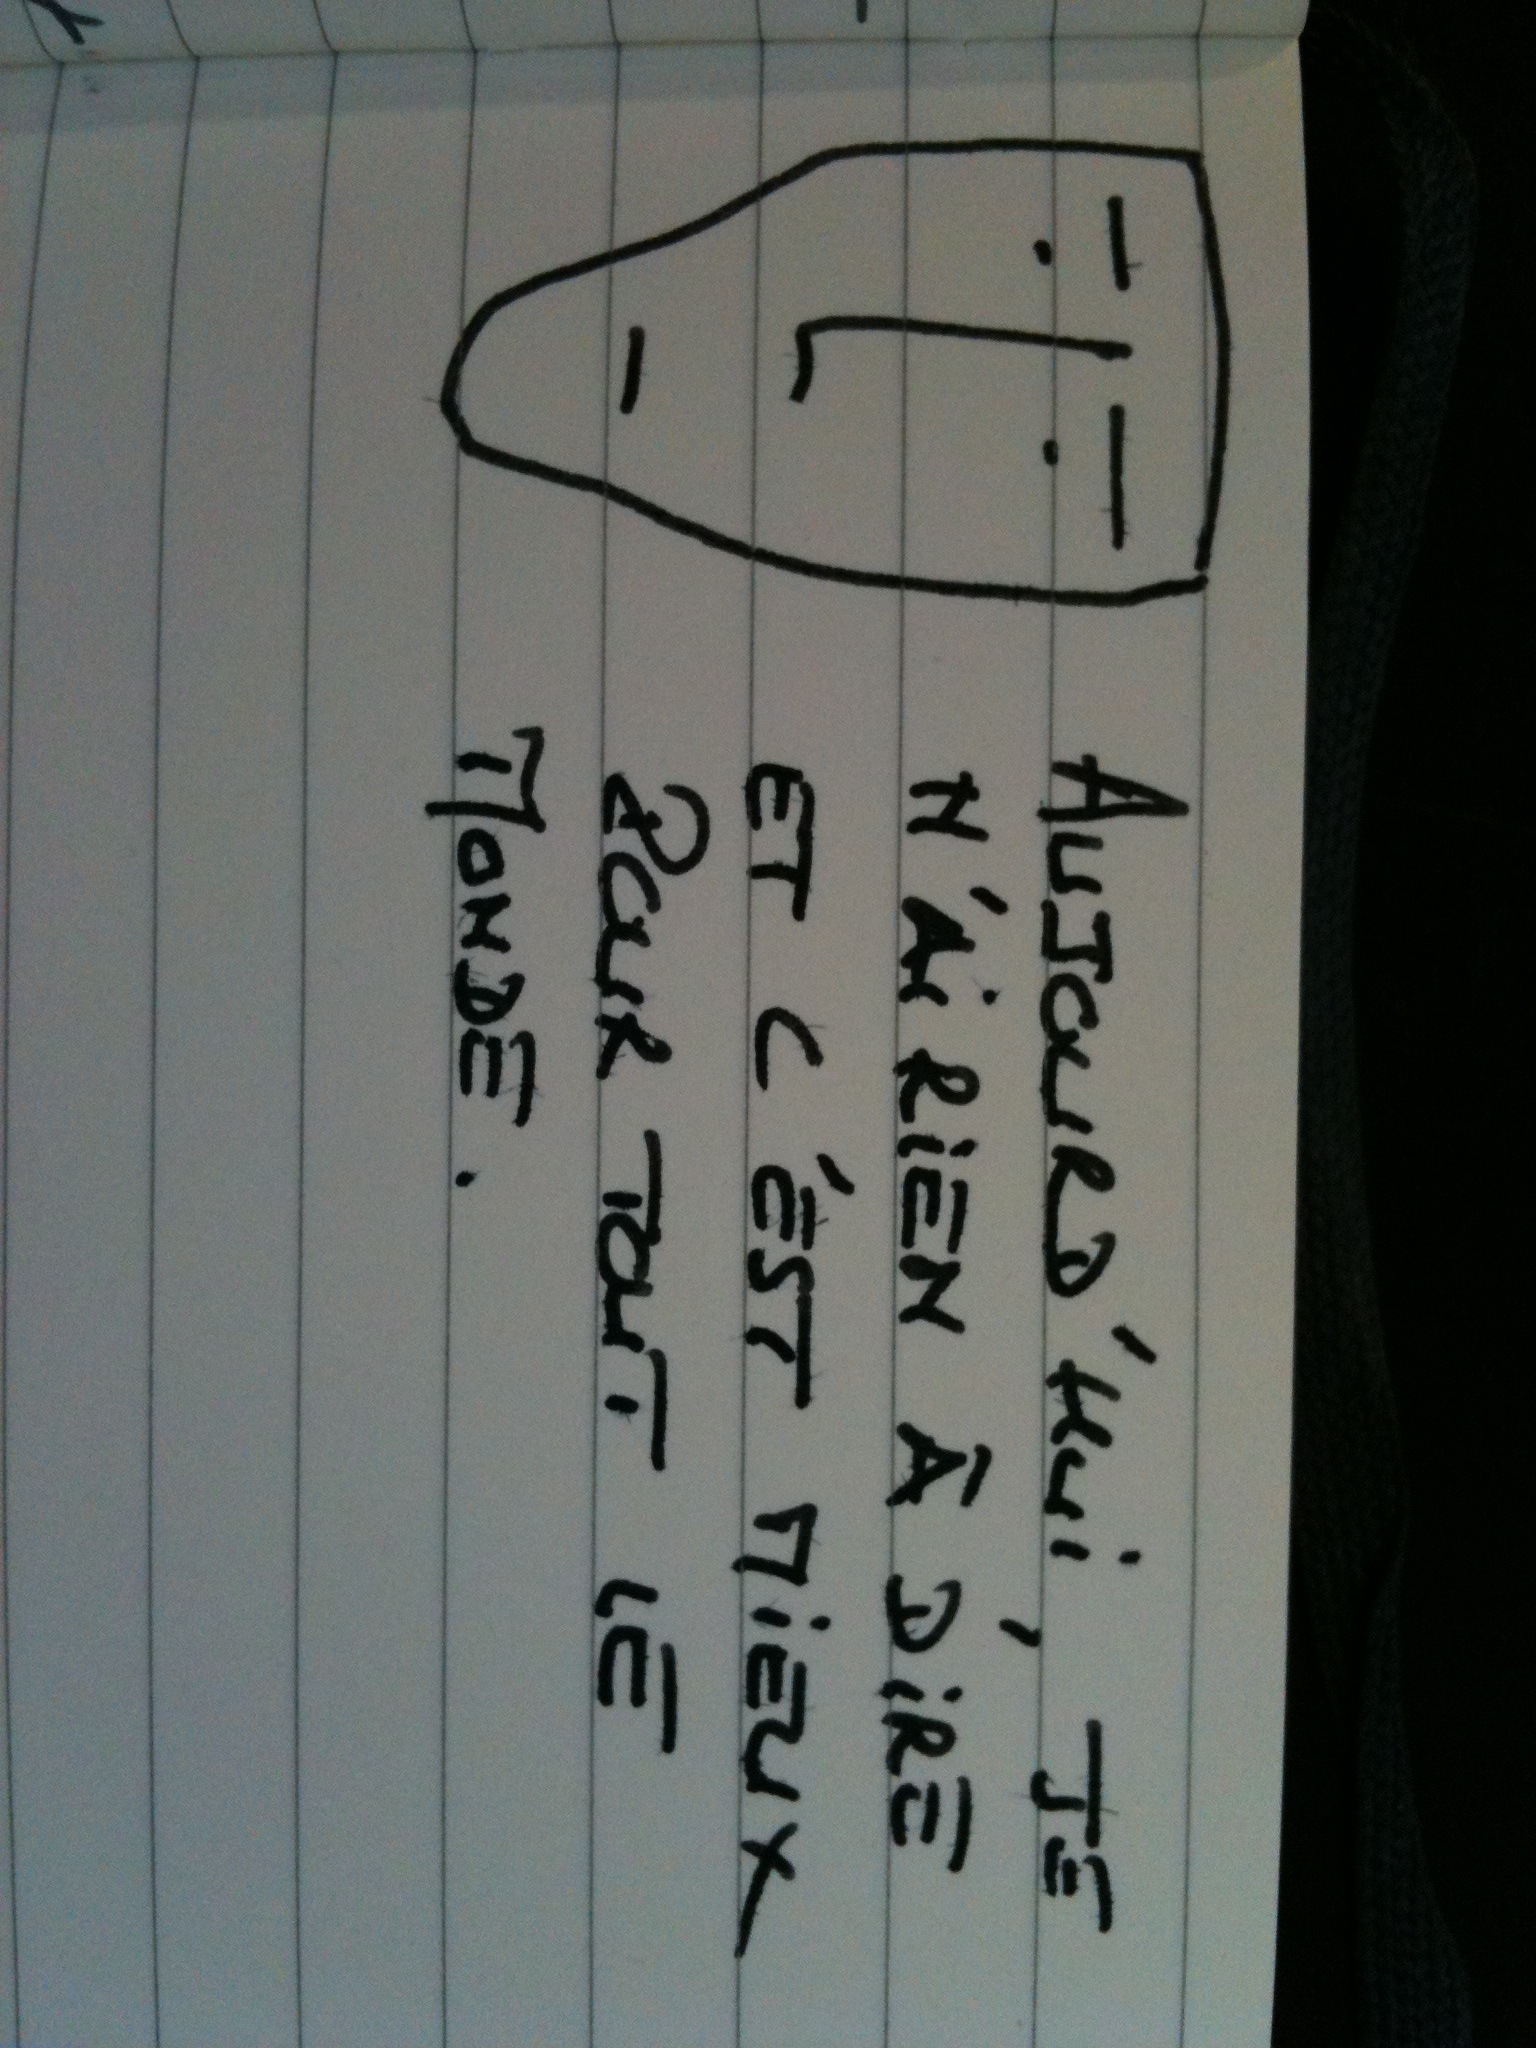 AUJOURD'HUI, JE
N'AI RIEN À DIRE
ET C'EST MIEUX
POUR TOUT LE
MONDE.